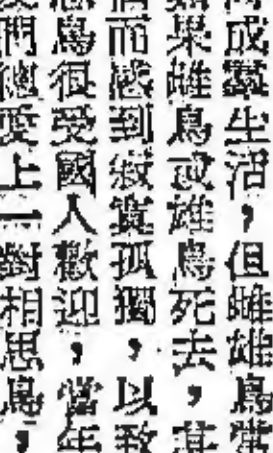 成羣生活，但雌雄鳥常
果雌鳥或雄鳥死去，其
而感到寂寞孤獨，以致
鳥很受國人歡迎，當年
們總愛上一對相思鳥，